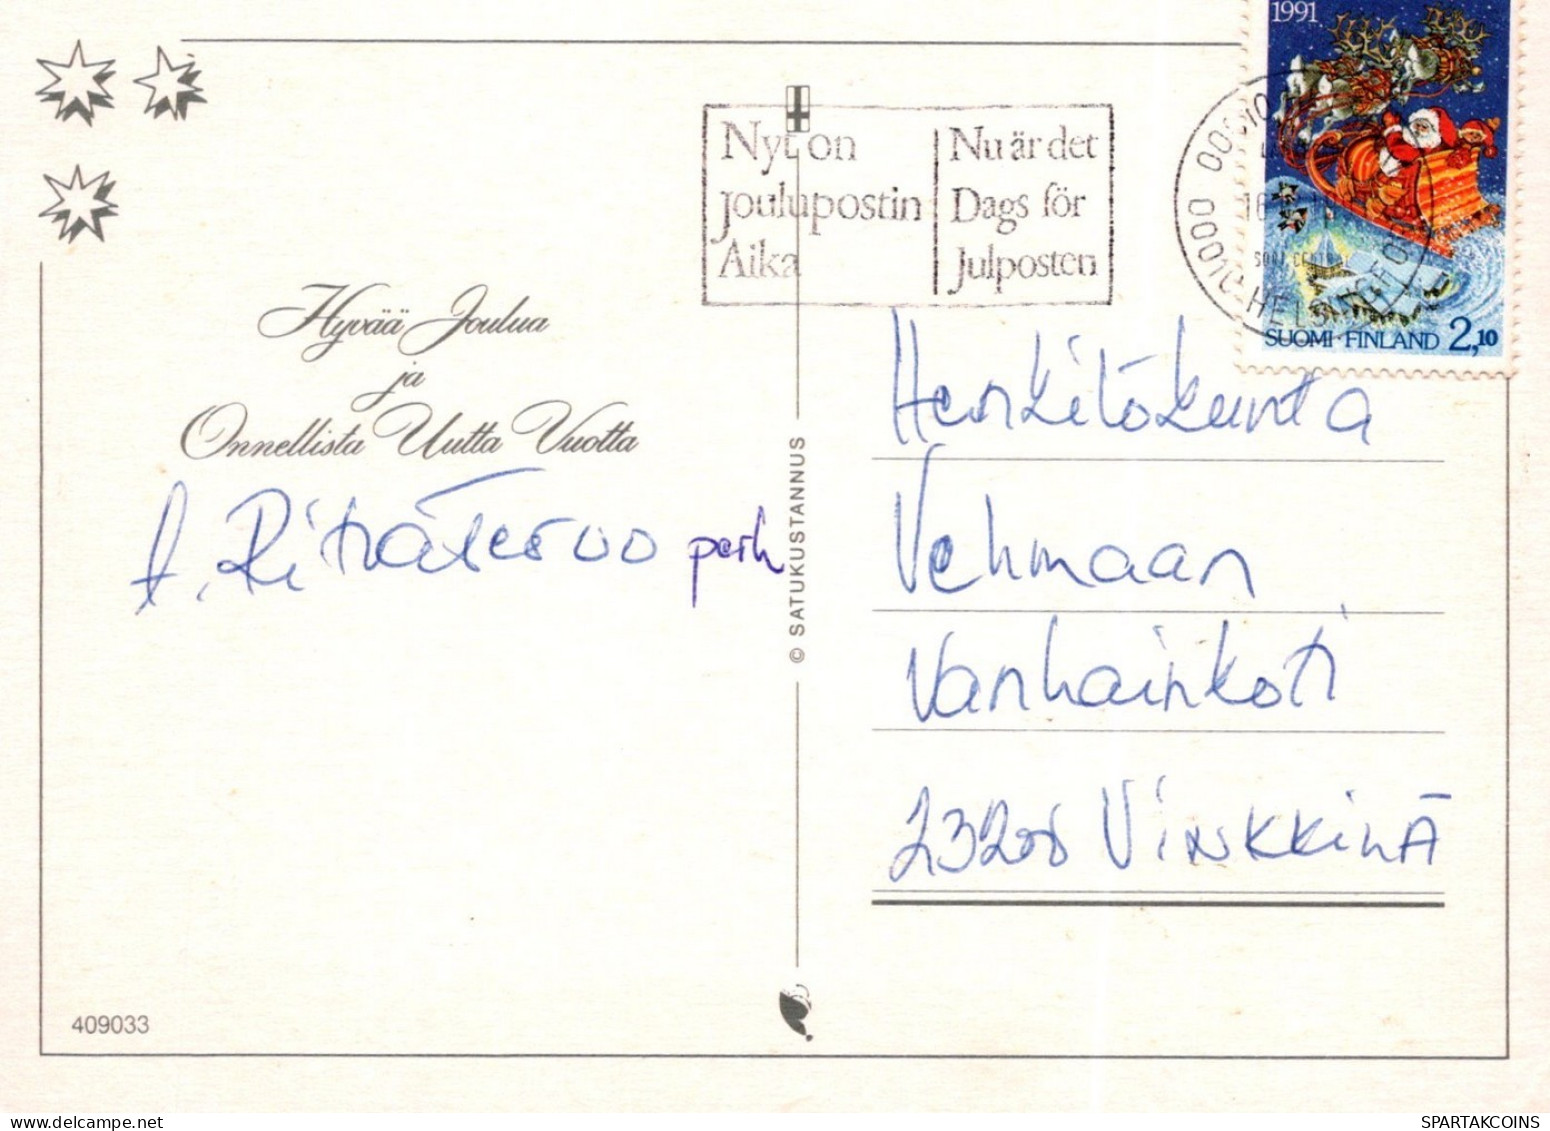 1991
Nyt on
Joulupostin
Aika
Nu är det
Dags för
Julposten
HELSINKI
SUOMI·FINLAND 2,10
Hyvää Joulua
ja
Onnellista Uutta Vuotta
perh
© SATUKUSTANNUS
Henkilökunta
Vehmaan
Vanhainkoti
23200 Vinkkilä
409033
SPARTAKCOINS